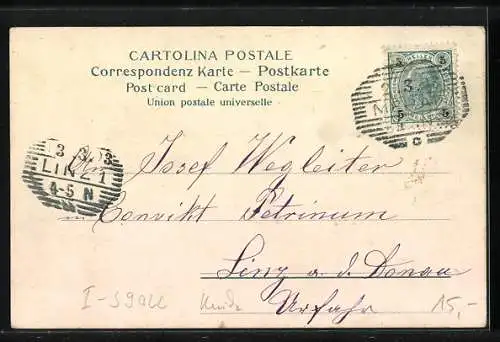 CARTOLINA POSTALE
Correspondenz Karte — Postkarte
Post card — Carte Postale
Union postale universelle
5 5
5 5
3 3 03
LINZ 1
4-5 N
Josef Wegleiter
Convikt Petrinum
Linz a. d. Donau
Urfahr
15,-